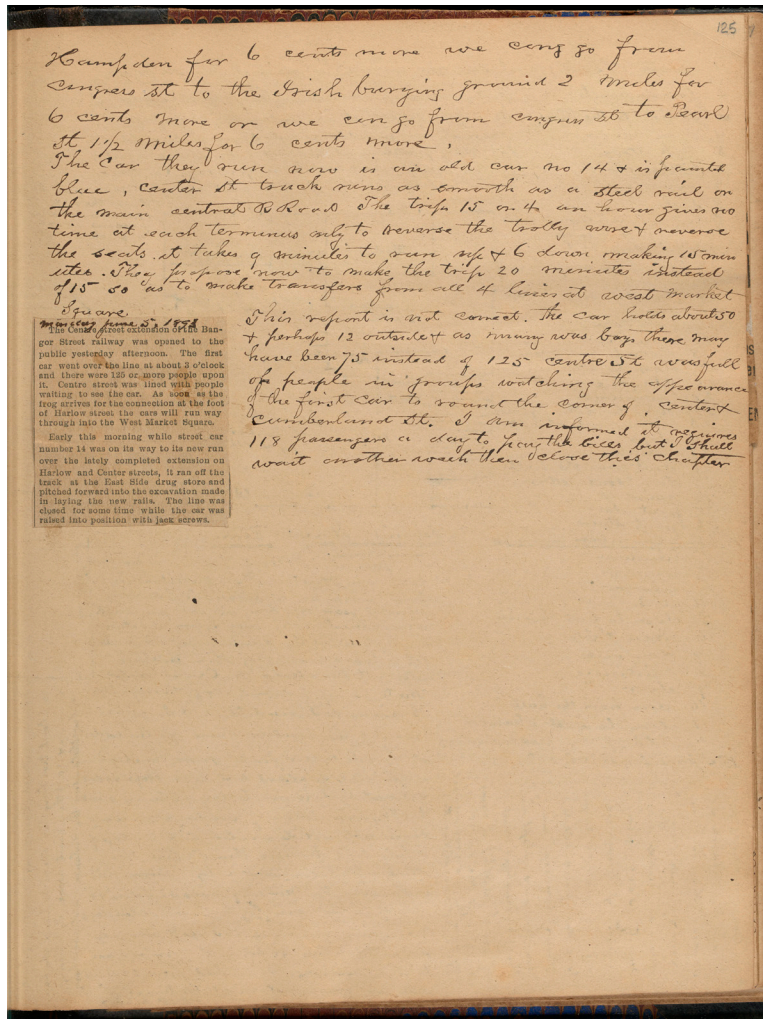 125
Hampden for 6 cents more we cong go from
congress st to the Irish burying ground 2 miles for
6 cents more or we can go from congress st to Pearl
St, 1 1/2 miles for 6 cents more,
The car they run now is an old car no 14 & is painted
blue, center St track runs as smooth as a steel rail on
the main central R Road The trip 15 or 4 an hour gives no
time at each terminus only to reverse the trolly wire & reverse
the seats, it takes 9 minutes to run up & 6 down, making 15 min
utes. They propose now to make the trip 20 minutes instead
of 15 so as to make transfers from all 4 lines at west market
Square
Monday June 5, 1893
The Centre street extension of the Ban-
gor Street railway was opened to the
public yesterday afternoon. The first
car went over the line at about 3 o'clock
and there were 125 or more people upon
it. Centre street was lined with people
waiting to see the car. As soon as the
frog arrives for the connection at the foot
of Harlow street the cars will run way
through into the West Market Square.
Early this morning while street car
number 14 was on its way to its new run
over the lately completed extension on
Harlow and Center streets, it ran off the
track at the East Side drug store and
pitched forward into the excavation made
in laying the new rails. The line was
closed for some time while the car was
raised into position with jack screws.
This report is not correct. the car holds about 50
& perhaps 12 outside & as many was boys there may
have been 75 instead of 125 centre St was full
of people in groups watching the appearance
of the first car to round the corner of center &
Cumberland St. I am informed it requires
118 passengers a day to pay the bills, but I shall
wait another week then close this chapter